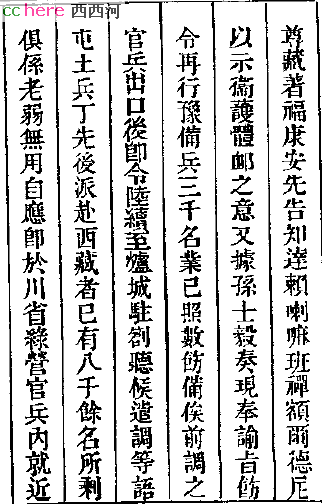 cchere 西西河
尊藏著福康安先告知達賴喇嘛班禪額爾德尼
以示衞護體卹之意又據孫士毅奏現奉諭旨飭
令再行豫備兵三千名業已照數飭備俟前調之
官兵出口後卽令陸續至爐城駐劄聽候遣調等語
屯土兵丁先後派赴西藏者已有八千餘名所剩
俱係老弱無用自應卽於川省綠營官兵內就近